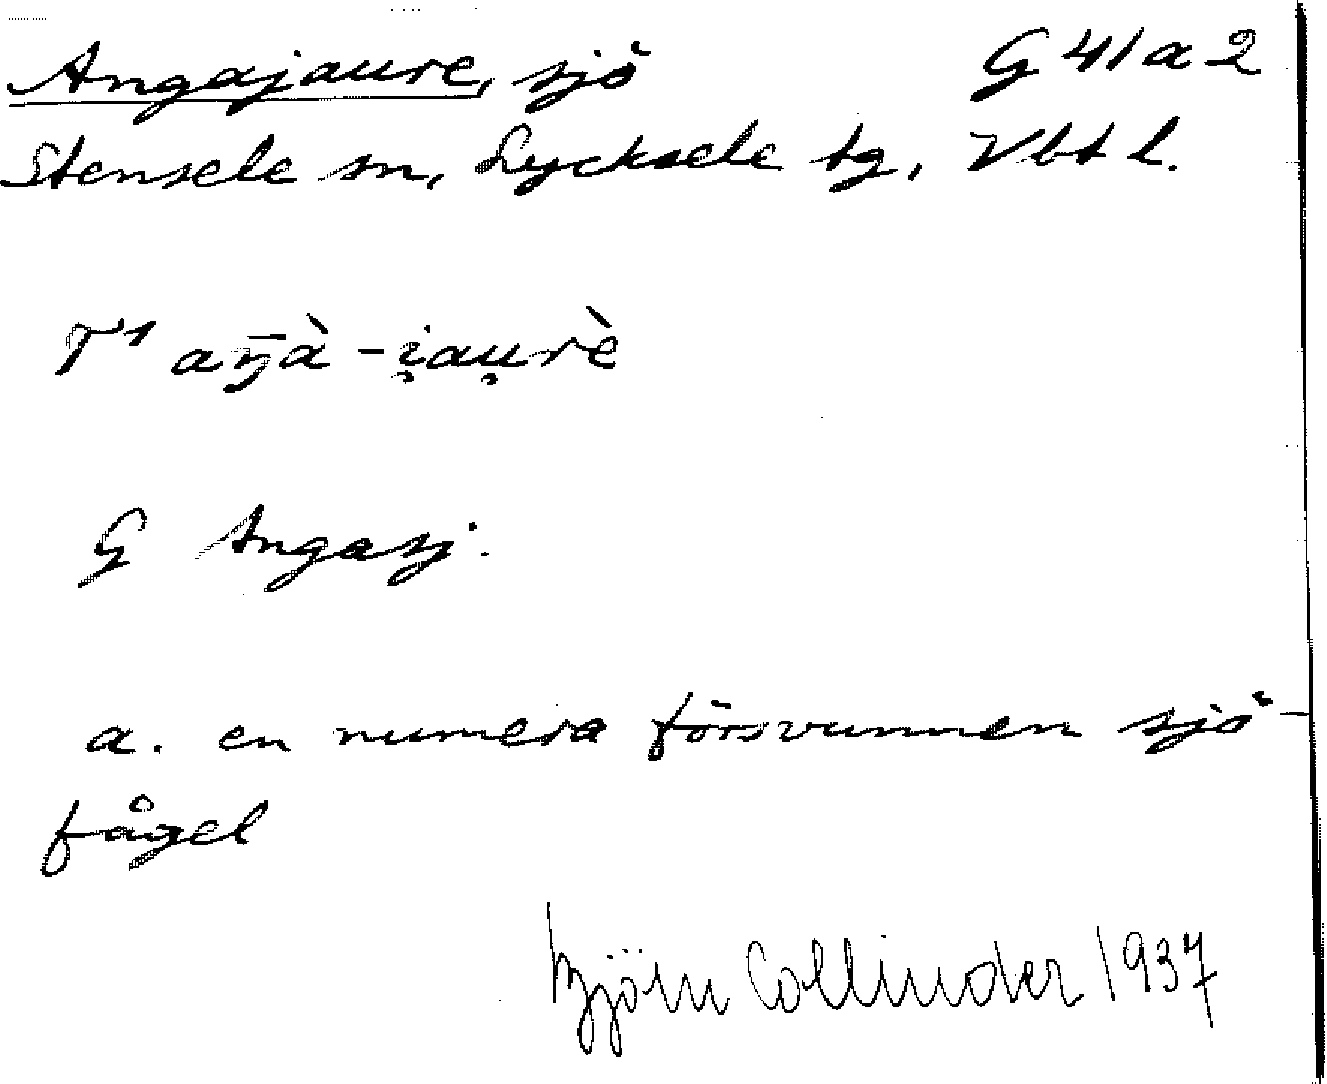 Angajaure, sjö G 41 a 2
Stensele sn, Lycksele tg, Vbt l.
T¹ aŋ̄à-i̯au̯rè
G Angasj.
a. en numera försvunnen sjö-
fågel
Björn Collinder 1937